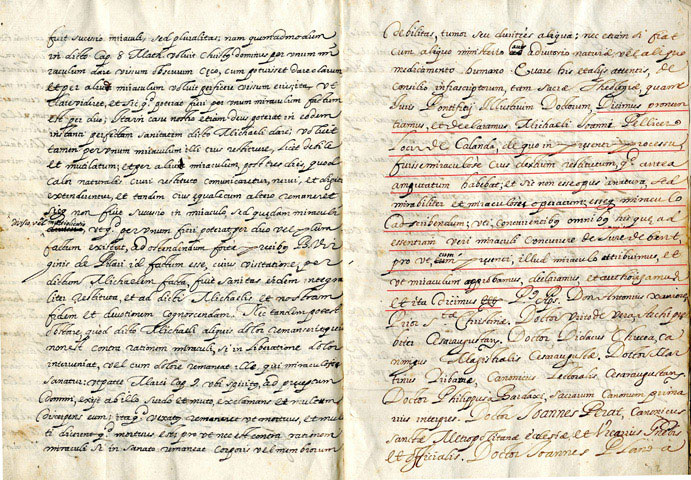 fuit sucusio miraculi, sed pluralitas; nam quemadmodum
in dicto Cap. 8 Math. voluit Christus dominus per unum mi
raculum dare visum obscurum Ceco, cum potuisset dare clarum
et per aliud miraculum voluit perficere visum
et sic
est per duo; ita in casu nostro etiam deus poterat in eodem
instanti perfectam sanitatem dicto Michaeli dare; voluit
tamen per unum miraculum illi crus restituere, licet debile
et mutilatum; et per aliud miraculum, post tres dies, quod
calor naturalis cruri restituto comunicaretur, nervi, et digiti
extenderentur, et tandem crus equale cum altero remaneret
non fuit sucusio in miraculo sed quedam miraculi
per unum fieri poterat per duo vel plura
factum existere, ad ostendendum forte precibus B. Vir
ginis de Pilari id factum esse, cuius visitatione, per
dictum Michaelem facta, fuit sanitas eidem integra
liter restituta, et ad dicti Michaelis et nostram
fidem et devotionem cognoscendam. Nec tandem potest
obstare, quod dicto Michaeli aliquis dolor remanserit quia
non est contra rationem miraculi, si in liberatione dolor
interveniat, vel cum dolore remaneat ille, qui miraculose
sanatur: ut patet Marci Cap. 9. ubi spiritus, ad preceptum
Domini, exijt ab illo surdo et muto, exclamans et multum
discerpens eum; itaque vexatus remaneret ut mortuus, et mul
ti dicerent quod mortuus est; pro ut nec est contra rationem
miraculi si in sanato remaneat Corporis vel membrorum
Debilitas, tumor seu durities aliqua; nec etiam si fiat
cum aliquo ministerio aut adiutorio nature vel aliquo
medicamento humano. Quare his et alijs attentis, de
Consilio infrascriptorum, tam Sacre Theologie, quam
Iuris Pontificij Illustrium Doctorum, Dicimus pronun
tiamus, et declaramus Michaeli Joanni Pellicer
loci de Calanda, de quo in presenti processu
fuisse miraculose crus dextrum restitutum, quod antea
amputatum habebat, et sic non esse opus a natura, sed
mirabiliter et miraculose operatum; esseque miraculo
adscribendum; uti, concurrentibus omnibus hisque ad
essentiam veri miraculi concurrere de iure debent,
pro ut cum presenti, illud miraculo attribuimus, et
ut miraculum approbamus, declaramus, et authorizamus
et ita dicimus etc. P. Archieps. Don Antonius Xavierre
Prior S.tae Christine. Doctor Virto de Vera, Archipres
biter Cesaraugustanus. Doctor Didacus Chueca, ca
nonicus Magistralis Cesaraugustae. Doctor Mar
tinus Diribarne, Canonicus Lectoralis Cesaraugustanus.
Doctor Philippus Bardaxi, Sacrorum Canonum prima
rius interpres. Doctor Joannes Perat, Canonicus
Sancte Metropolitane ecclesie et Vicarius Generalis
et officialis. Doctor Joannes Plano a